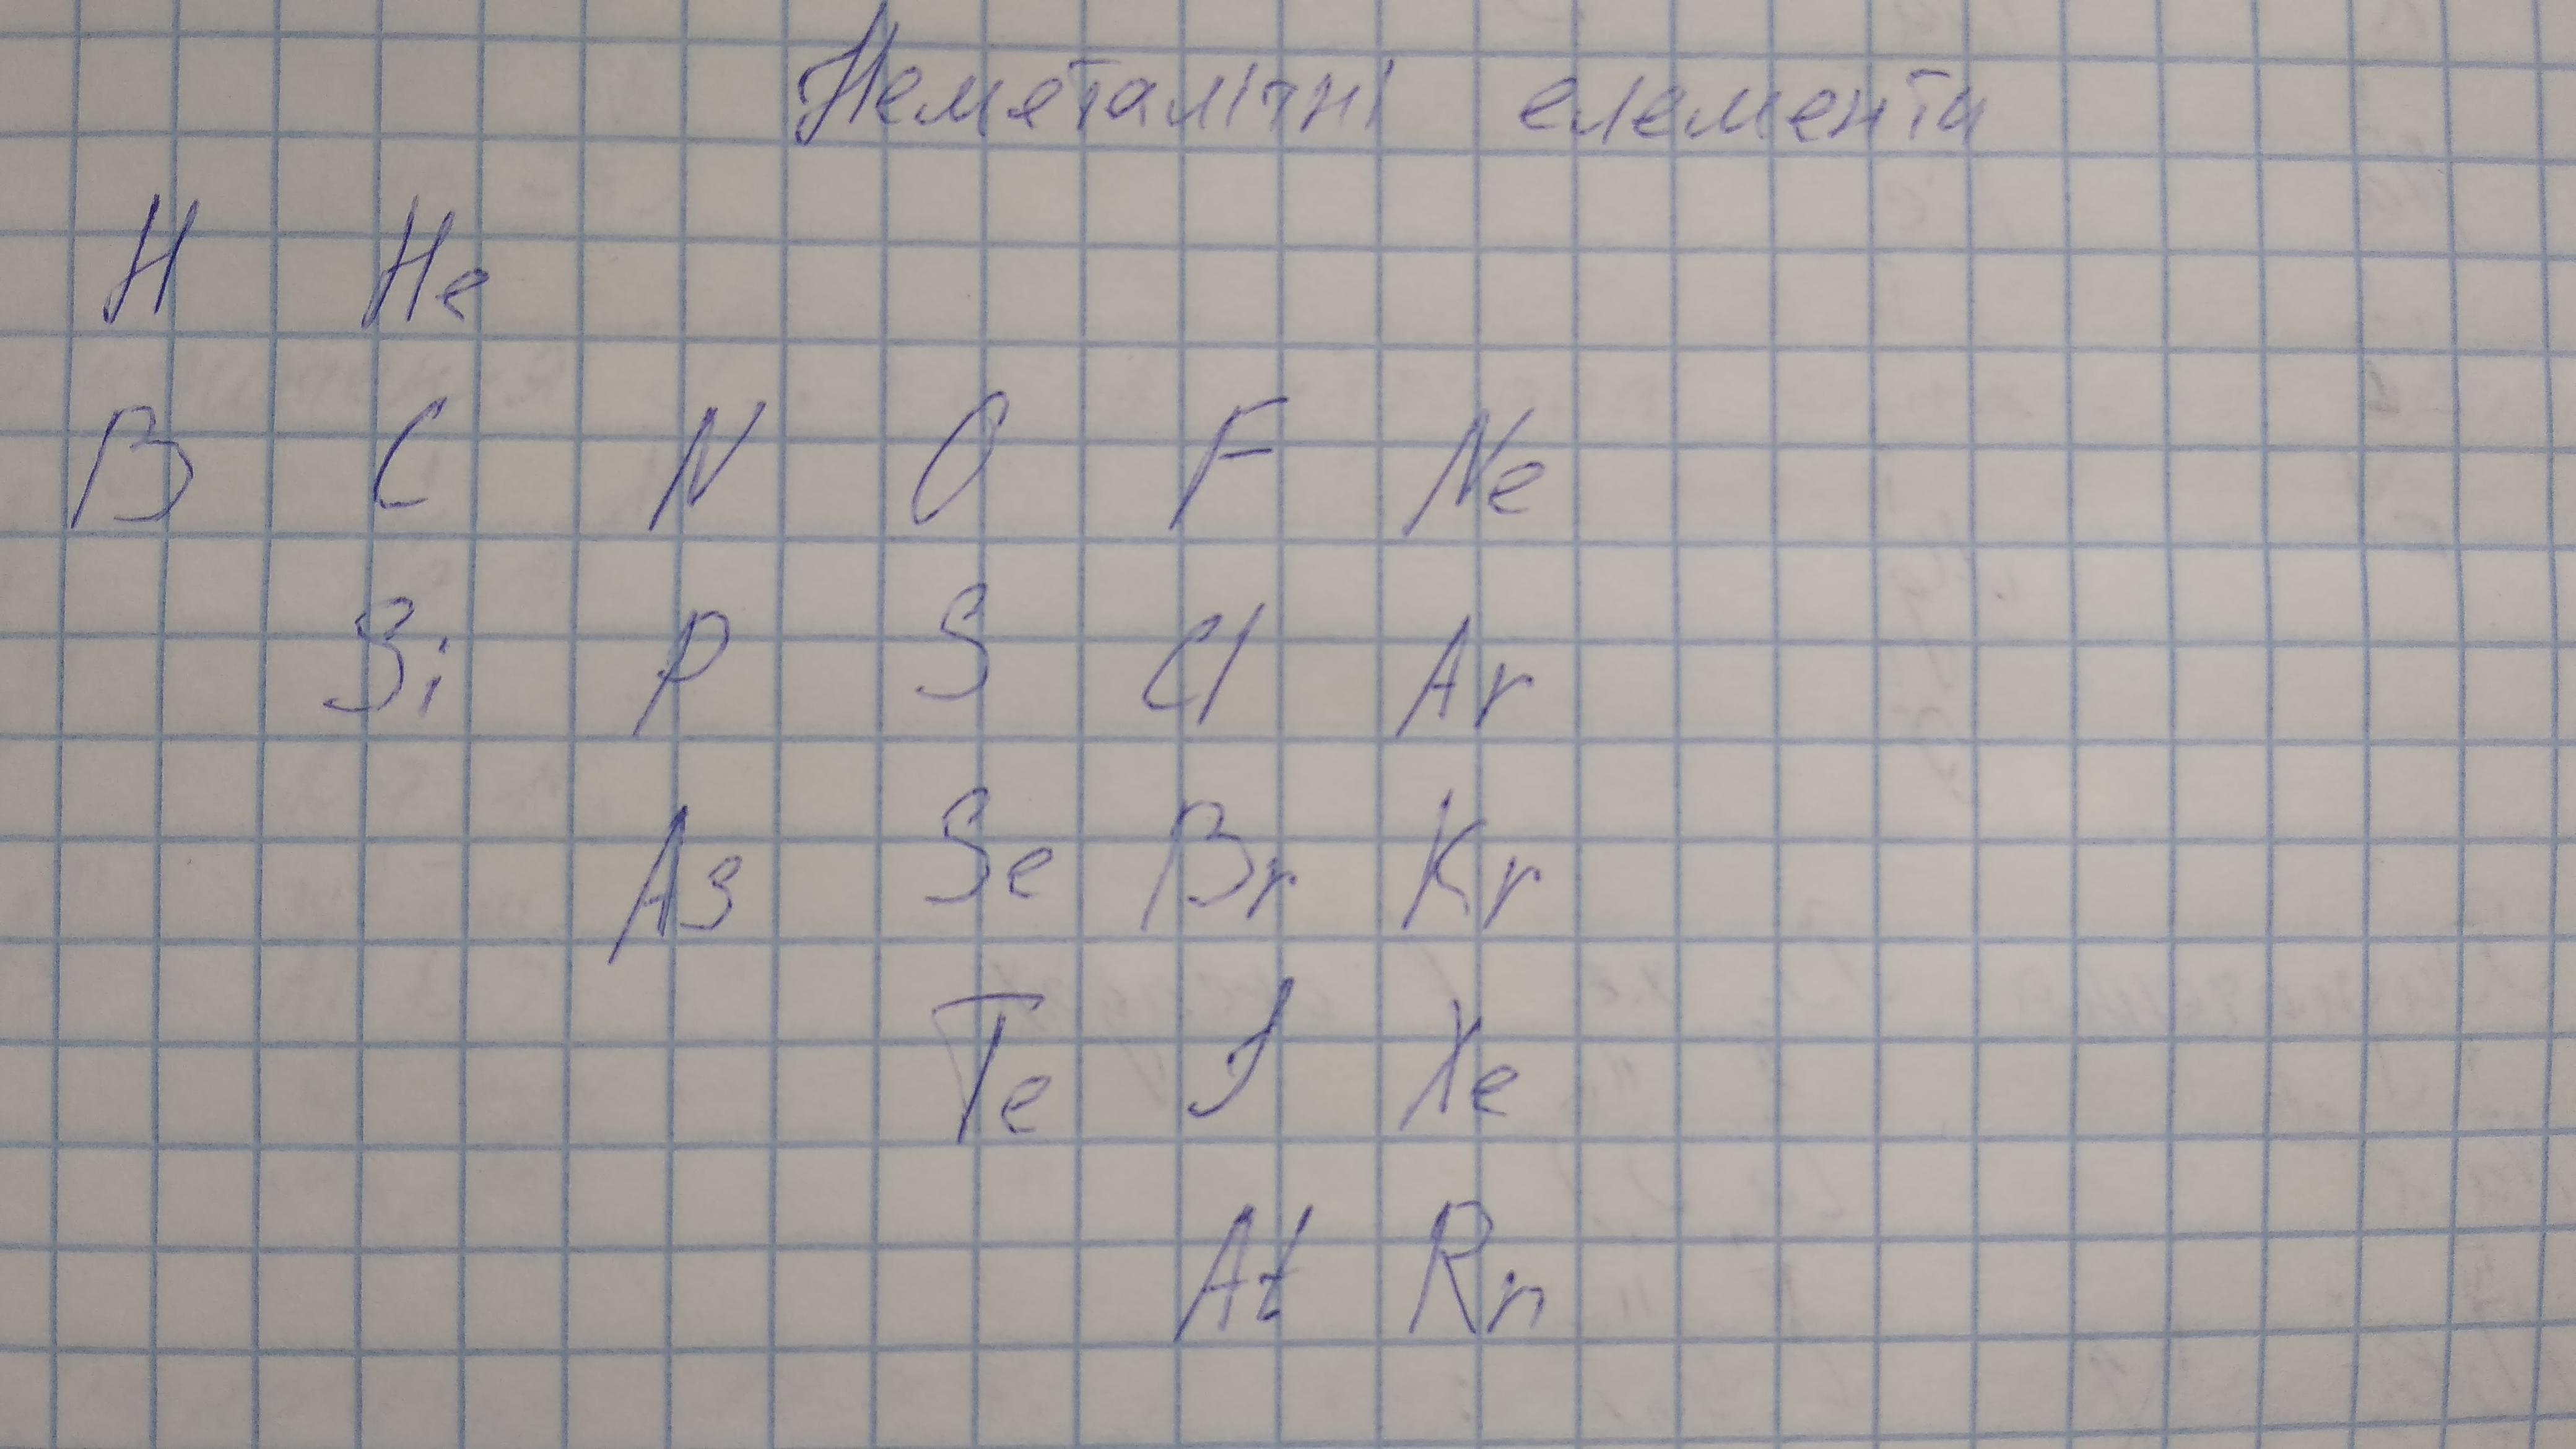 Неметалічні елементи
H He
B C N O F Ne
Si P S Cl Ar
As Se Br Kr
Te I Xe
At Rn